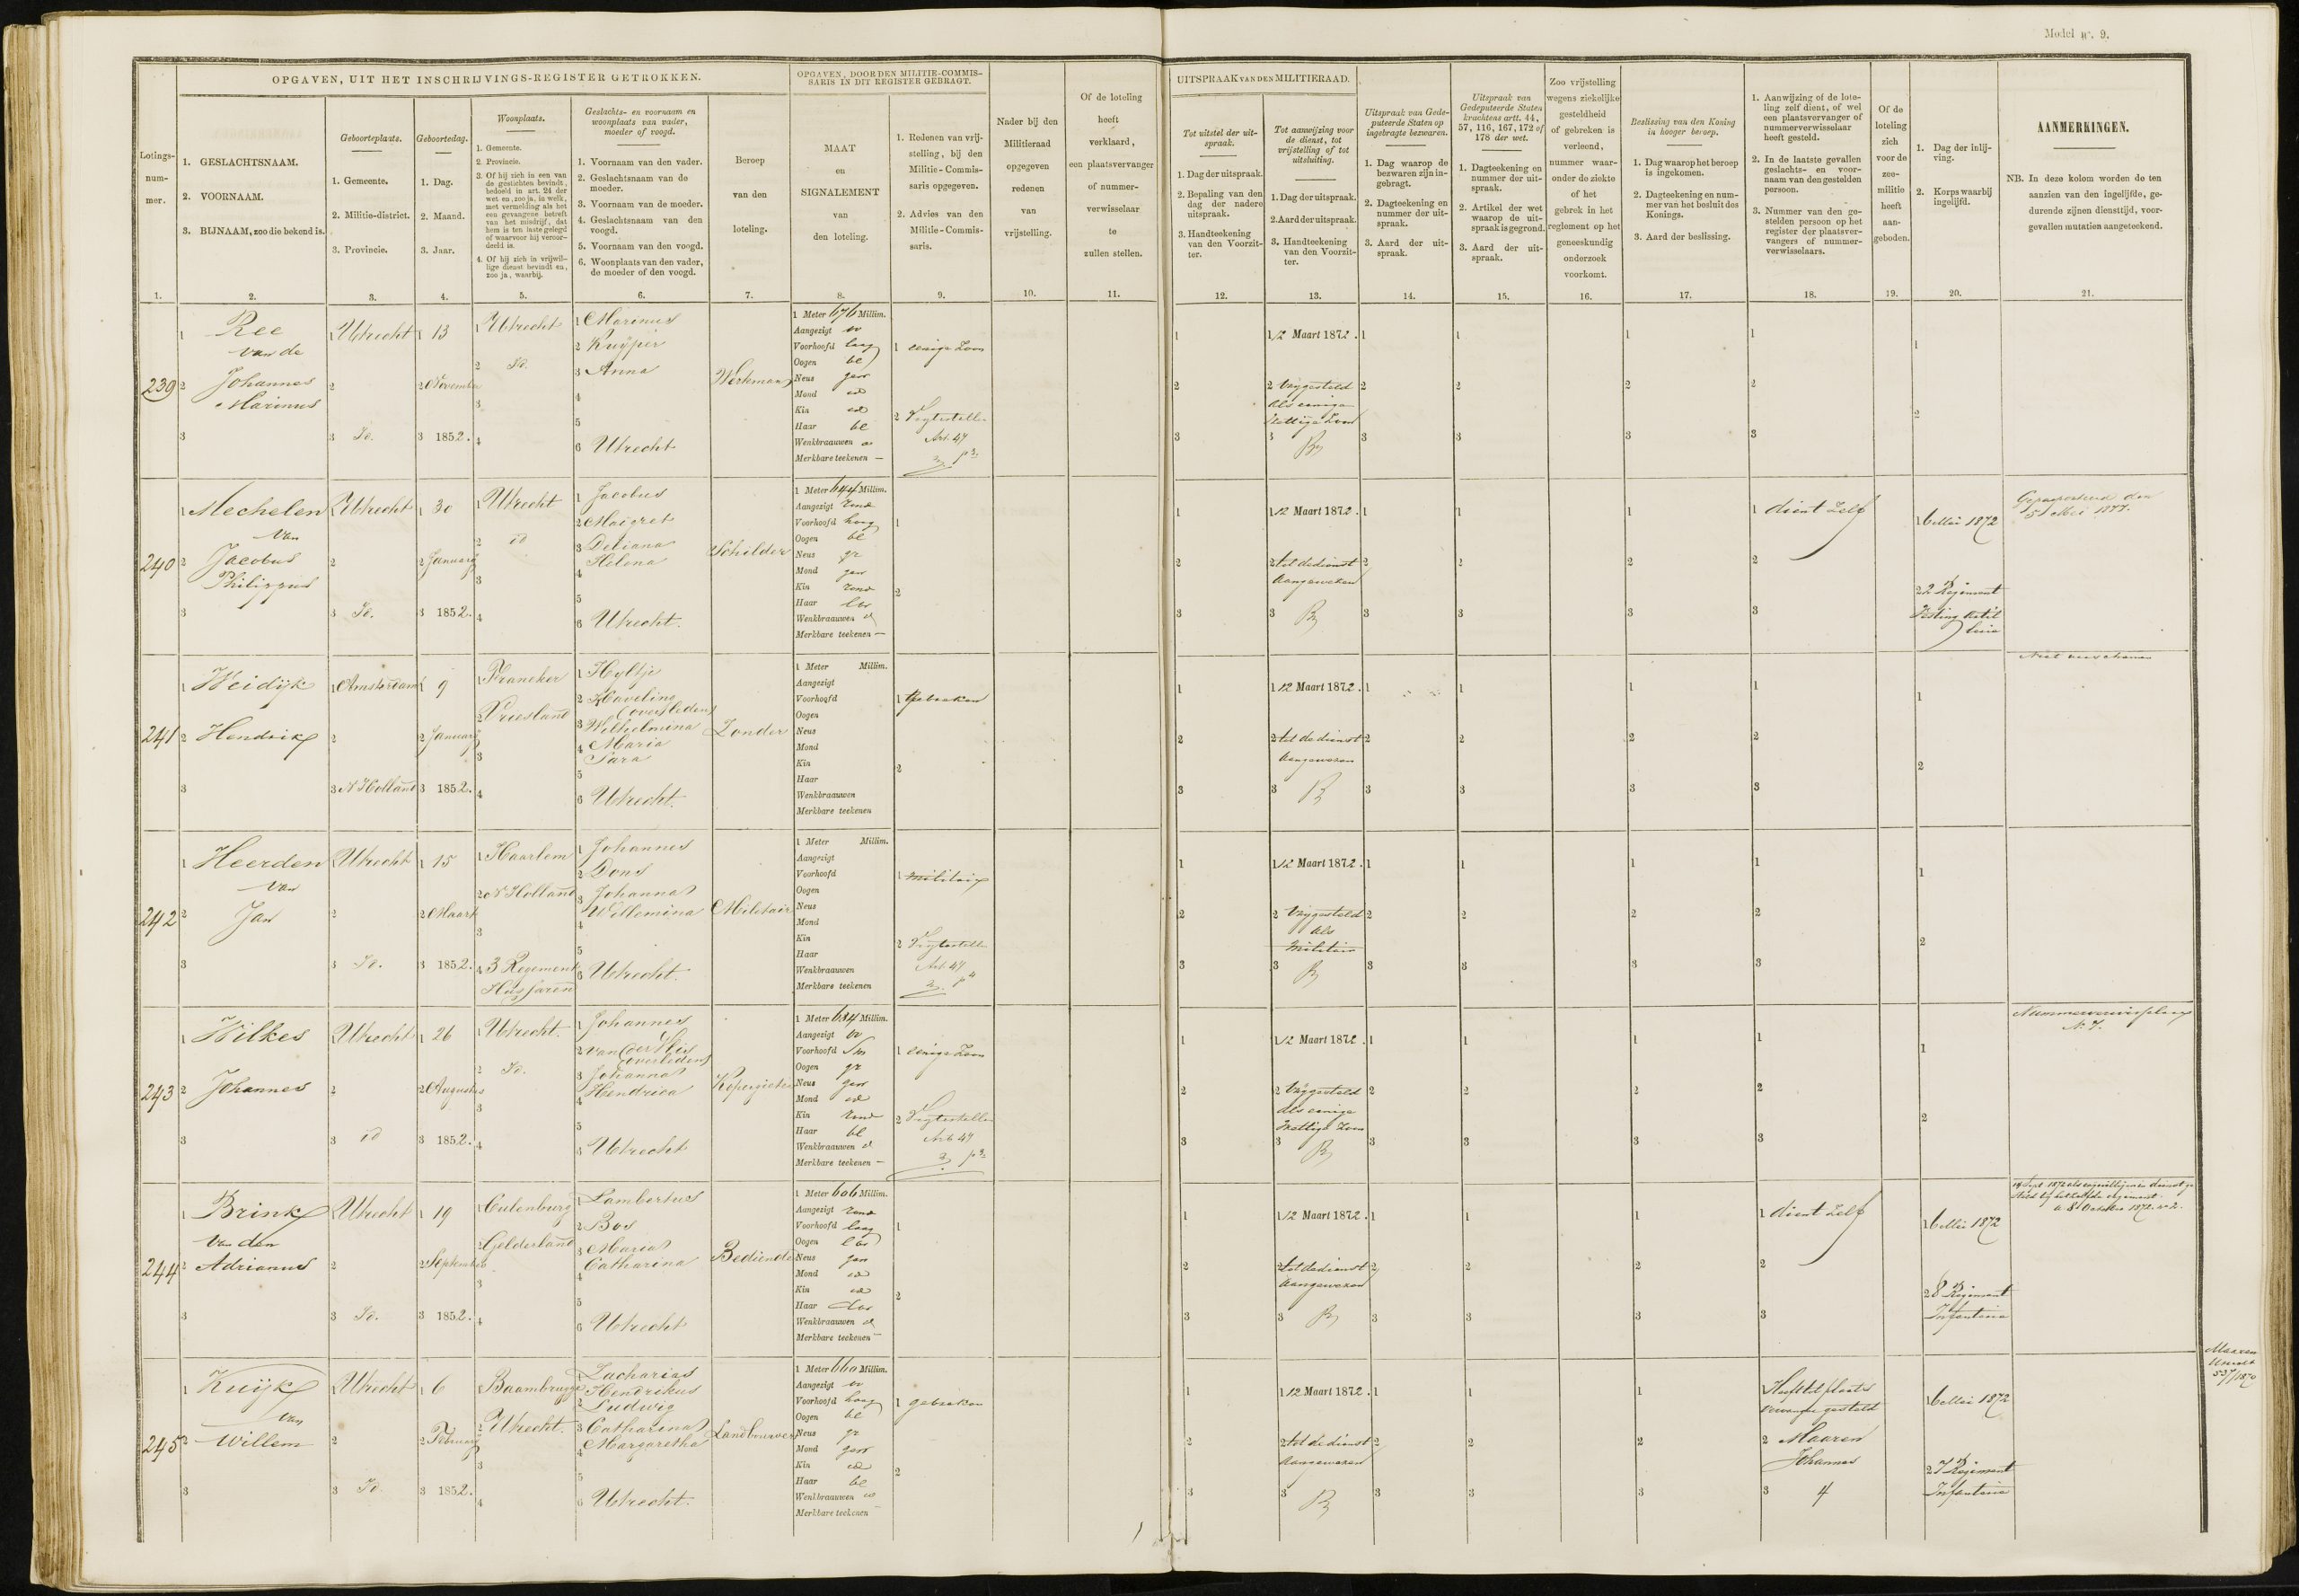 Model nº. 9.
OPGAVEN, UIT HET INSCHRIJVINGS-REGISTER GETROKKEN.
OPGAVEN, DOOR DEN MILITIE-COMMIS-
SARIS IN DIT REGISTER GEBRAGT.
UITSPRAAK VAN DEN MILITIERAAD.
Lotings-
num-
mer.
1.
1. GESLACHTSNAAM.
2. VOORNAAM.
3. BIJNAAM, zoo die bekend is.
2.
Geboorteplaats.
1. Gemeente.
2. Militie-district.
3. Provincie.
3.
Geboortedag.
1. Dag.
2. Maand.
3. Jaar.
4.
Woonplaats.
1. Gemeente.
2. Provincie.
3. Of hij zich in een van
de gestichten bevindt,
bedoeld in art. 24 der
wet en, zoo ja, in welk,
met vermelding als het
een gevangene betreft
van het misdrijf, dat
hem is ten laste gelegd
of waarvoor hij veroor-
deeld is.
4. Of hij zich in vrijwil-
lige dienst bevindt en,
zoo ja, waarbij.
5.
Geslachts- en voornaam en
woonplaats van vader,
moeder of voogd.
1. Voornaam van den vader.
2. Geslachtsnaam van de
moeder.
3. Voornaam van de moeder.
4. Geslachtsnaam van den
voogd.
5. Voornaam van den voogd.
6. Woonplaats van den vader,
de moeder of den voogd.
6.
Beroep
van den
loteling.
7.
MAAT
en
SIGNALEMENT
van
den loteling.
8.
1. Redenen van vrij-
stelling, bij den
Militie-Commis-
saris opgegeven.
2. Advies van den
Militie-Commis-
saris.
9.
Nader bij den
Militieraad
opgegeven
redenen
van
vrijstelling.
10.
Of de loteling
heeft
verklaard,
een plaatsvervanger
of nummer-
verwisselaar
te
zullen stellen.
11.
Tot uitstel der uit-
spraak.
1. Dag der uitspraak.
2. Bepaling van den
dag der nadere
uitspraak.
3. Handteekening
van den Voorzit-
ter.
12.
Tot aanwijzing voor
de dienst, tot
vrijstelling of tot
uitsluiting.
1. Dag der uitspraak.
2. Aard der uitspraak.
3. Handteekening
van den Voorzit-
ter.
13.
Uitspraak van Gede-
puteerde Staten op
ingebragte bezwaren.
1. Dag waarop de
bezwaren zijn in-
gebragt.
2. Dagteekening en
nummer der uit-
spraak.
3. Aard der uit-
spraak.
14.
Uitspraak van
Gedeputeerde Staten
krachtens artt. 44,
57, 116, 167, 172 of
178 der wet.
1. Dagteekening en
nummer der uit-
spraak.
2. Artikel der wet
waarop de uit-
spraak is gegrond.
3. Aard der uit-
spraak.
15.
Zoo vrijstelling
wegens ziekelijke
gesteldheid
of gebreken is
verleend,
nummer waar-
onder de ziekte
of het
gebrek in het
reglement op het
geneeskundig
onderzoek
voorkomt.
16.
Beslissing van den Koning
in hooger beroep.
1. Dag waarop het beroep
is ingekomen.
2. Dagteekening en num-
mer van het besluit des
Konings.
3. Aard der beslissing.
17.
1. Aanwijzing of de lote-
ling zelf dient, of wel
een plaatsvervanger of
nummerverwisselaar
heeft gesteld.
2. In de laatste gevallen
geslachts- en voor-
naam van den gestelden
persoon.
3. Nummer van den ge-
stelden persoon op het
register der plaatsver-
vangers of nummer-
verwisselaars.
18.
Of de
loteling
zich
voor de
zee-
militie
heeft
aan-
geboden.
19.
1. Dag der inlij-
ving.
2. Korps waarbij
ingelijfd.
20.
AANMERKINGEN.
NB. In deze kolom worden de ten
aanzien van den ingelijfde, ge-
durende zijnen diensttijd, voor-
gevallen mutatien aangeteekend.
21.
239
1 Ree
van de
2 Johannes
Marinus
3
1 Utrecht
2
3 Id.
1 13
2 November
3 1852.
1 Utrecht
2 Id.
3
4
1 Marinus
2 Kuijper
3 Anna
4
5
6 Utrecht
Werkman
1 Meter 676 Millim.
Aangezigt ov
Voorhoofd laag
Oogen bl
Neus gew
Mond id
Kin id
Haar bl
Wenkbraauwen id
Merkbare teekenen —
1 eenige Zoon
2 Vrijtestellen
Art. 47
1 12 Maart 1872.
2 Vrijgesteld
als eenige
Wettige Zoon
3
240
1 Mechelen
van
2 Jacobus
Philippus
3
1 Utrecht
2
3 Id.
1 30
2 Januarij
3 1852.
1 Utrecht
2 id
3
4
1 Jacobus
2 Maigret
3 Deliana
Helena
4
5
6 Utrecht.
Schilder
1 Meter 644 Millim.
Aangezigt rond
Voorhoofd hoog
Oogen bl
Neus gr
Mond gew
Kin rond
Haar
Wenkbraauwen id
Merkbare teekenen —
1
2
1 12 Maart 1872.
2 tot de dienst
Aangewezen
3
1 dient Zelf
2
3
1 6 Mei 1872
2 2e Regiment
Vesting Artil
lerie
Gepasporteerd den
5 Mei 1877.
241
1 Weidijk
2 Hendrik
3
1 Amsterdam
2
3 N Holland
1 9
2 Januarij
3 1852.
1 Franeker
2 Vriesland
3
4
1 Hyltje
2 Haveling
(overleden)
3 Wilhelmina
4 Maria
Sara
5
6 Utrecht.
Zonder
1 Meter Millim.
Aangezigt
Voorhoofd
Oogen
Neus
Mond
Kin
Haar
Wenkbraauwen
Merkbare teekenen
1 Gebreken
2
1 12 Maart 1872.
2 tot de dienst
Aangewezen
3
Niet verschenen
242
1 Heerden
van
2 Jan
3
1 Utrecht
2
3 Id.
1 15
2 Maart
3 1852.
1 Haarlem
2 N Holland
3
4 3 Regement
Hussaren
1 Johannes
2 Dons
3 Johanna
Willemina
4
5
6 Utrecht.
Militair
1 Meter Millim.
Aangezigt
Voorhoofd
Oogen
Neus
Mond
Kin
Haar
Wenkbraauwen
Merkbare teekenen
1 Militair
2 Vrijtestellen
Art 47
1 12 Maart 1872.
2 Vrijgesteld
als
Militair
3
243
1 Wilkes
2 Johannes
3
1 Utrecht
2
3 id
1 26
2 Augustus
3 1852.
1 Utrecht.
2 Id.
3
4
1 Johannes
2 van der
(overleden)
3 Johanna
Hendrica
4
5
6 Utrecht
Kopergieter
1 Meter 634 Millim.
Aangezigt ov
Voorhoofd
Oogen gr
Neus gew
Mond id
Kin rond
Haar bl
Wenkbraauwen id
Merkbare teekenen —
1 eenige Zoon
2 Vrijtestellen
Art 47
1 12 Maart 1872.
2 Vrijgesteld
als eenige
Wettige Zoon
3
Nummerverwisseling
No 7.
244
1 Brink
van den
2 Adrianus
3
1 Utrecht
2
3 Id.
1 19
2 September
3 1852.
1 Culenburg
2 Gelderland
3
4
1 Lambertus
2 Bos
3 Maria
Catharina
4
5
6 Utrecht
Bediende
1 Meter 606 Millim.
Aangezigt rond
Voorhoofd laag
Oogen
Neus gew
Mond id
Kin id
Haar
Wenkbraauwen id
Merkbare teekenen —
1
2
1 12 Maart 1872.
2 tot de dienst
Aangewezen
3
1 dient Zelf
2
3
1 6 Mei 1872
2 8e Regiment
Infanterie
245
1 Kuijk
van
2 Willem
3
1 Utrecht
2
3 Id
1 6
2 Februarij
3 1852.
1 Baambrugge
2 Utrecht.
3
4
1 Zacharias
Hendrikus
2 Ludwig
3 Catharina
Margaretha
4
5
6 Utrecht.
Landbouwer
1 Meter 660 Millim.
Aangezigt ov
Voorhoofd hoog
Oogen bl
Neus gr
Mond gew
Kin id
Haar bl
Wenkbraauwen id
Merkbare teekenen —
1 gebreken
2
1 12 Maart 1872.
2 tot de dienst
Aangewezen
3
1 Heeft tot plaats
vervanger gesteld
2 Maaren
Johannes
3 4
1 6 Mei 1872
2 7e Regiment
Infanterie
Maaren